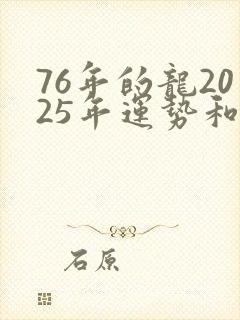 76年的龍20
25年運勢和
石原